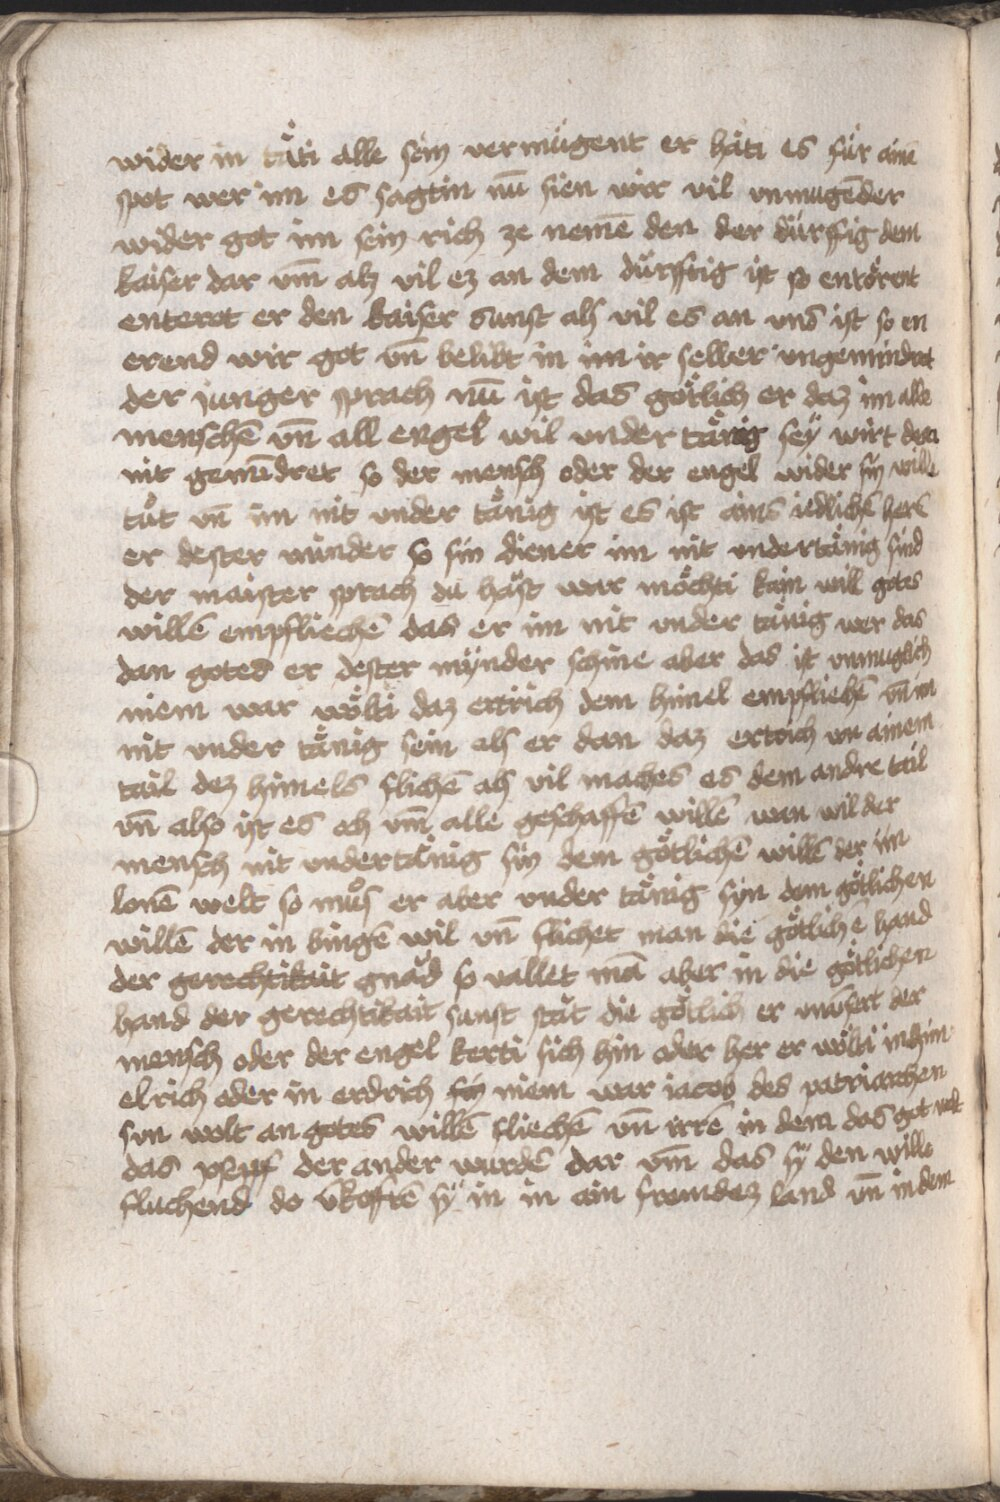 wider in tåti alle sein vermügent er håti es für ainē
spot wer im es sagtin nū sien wir vil vnmugēder
wider got im sein rich ze nemē den der dürfftig dem
kaiser dar vm̄ alz vil ez an dem dürfftig ist so entőrent
enteret er den kaiser sunst als vil es an vns ist so en
erend wir got vn̄ belibt in im ir selber vngemindret
der junger sprach nū ist das gőtlich er daz im alle
menschē vn̄ all engel wil vnder tånig seÿ wirt den
nit gemīdret so der mensch oder der engel wider sin wille
tůt vn̄ im nit vnder tånig ist es ist ains iedlichē herē
er dester minder so sin diener im nit vndertånig sind
der maister sprach du håst war mőchti kain will gotes
willē empfliechē das er im nit vnder tånig wer das
dan gotes er dester mÿnder schine aber das ist vnmuglich
niem war wőlti daz ertrich dem himel empfliechē vn̄ im
nit vnder tånig sein als er dan daz ertrich von ainem
tail dez himels flichē als vil naches es dem andrē tail
vn̄ also ist es och vm̄ alle geschaffē willē wan wil der
mensch nit vndertånig sin dem gőtlichē willē der im
lonē welt so můs er aber vnder tånig syn dem gőtlichen
willē der in bingē wil vn̄ flichet man die gőtlichē hand
der gerechtikait gnåd so vallet mā aber in die gőtlichen
hand der gerechtikait sunst ståt die gőtlich er vnuſert der
mensch oder der engel kerti sich hin oder her er wőlti in him
elrich oder in erdrich sin niem war iacob des patriarchen
sun wolt an gotes willē fliechē vn̄ irrē in dem das got welt
das der ander wurdē dar vm̄ das sÿ den wille
fluchend do v̄kofftē sÿ in in ain fremdez land vn̄ in dem